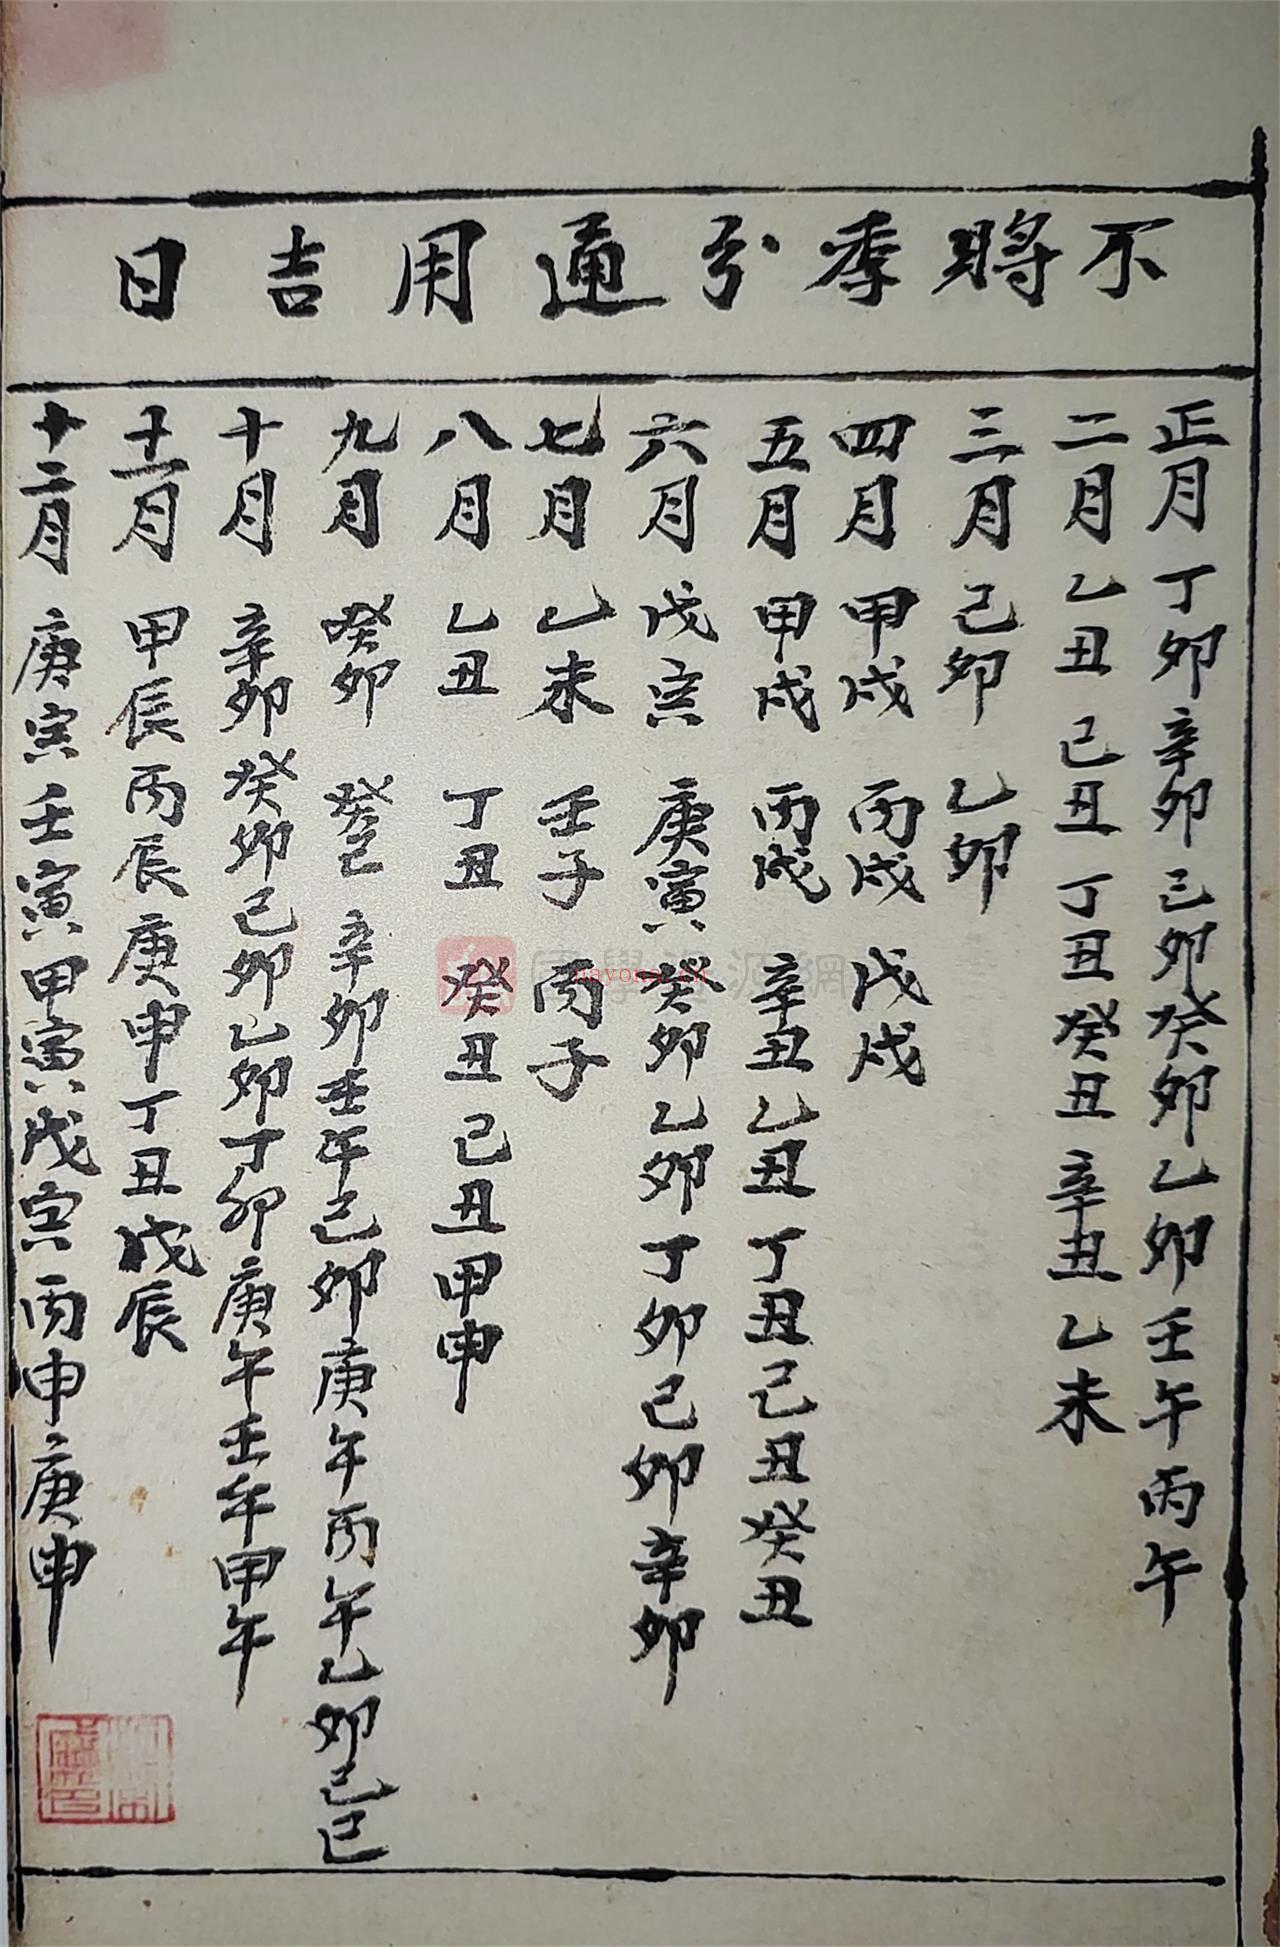 不將季分通用吉日
正月 丁卯 辛卯 己卯 癸卯 乙卯 壬午 丙午
二月 乙丑 己丑 丁丑 癸丑 辛丑 乙未
三月 己卯 乙卯
四月 甲戌 丙戌 戊戌
五月 甲戌 丙戌 辛丑 乙丑 丁丑 己丑 癸丑
六月 戊寅 庚寅 癸卯 乙卯 丁卯 己卯 辛卯
七月 乙未 壬子 丙子
八月 乙丑 丁丑 癸丑 己丑 甲申
九月 癸卯 癸巳 辛卯 壬午 己卯 庚午 丙午 乙卯 己巳
十月 辛卯 癸卯 己卯 乙卯 丁卯 庚午 壬午 甲午
十一月 甲辰 丙辰 庚申 丁丑 戊辰
十二月 庚寅 壬寅 甲寅 戊寅 丙申 庚申
nayona.cn